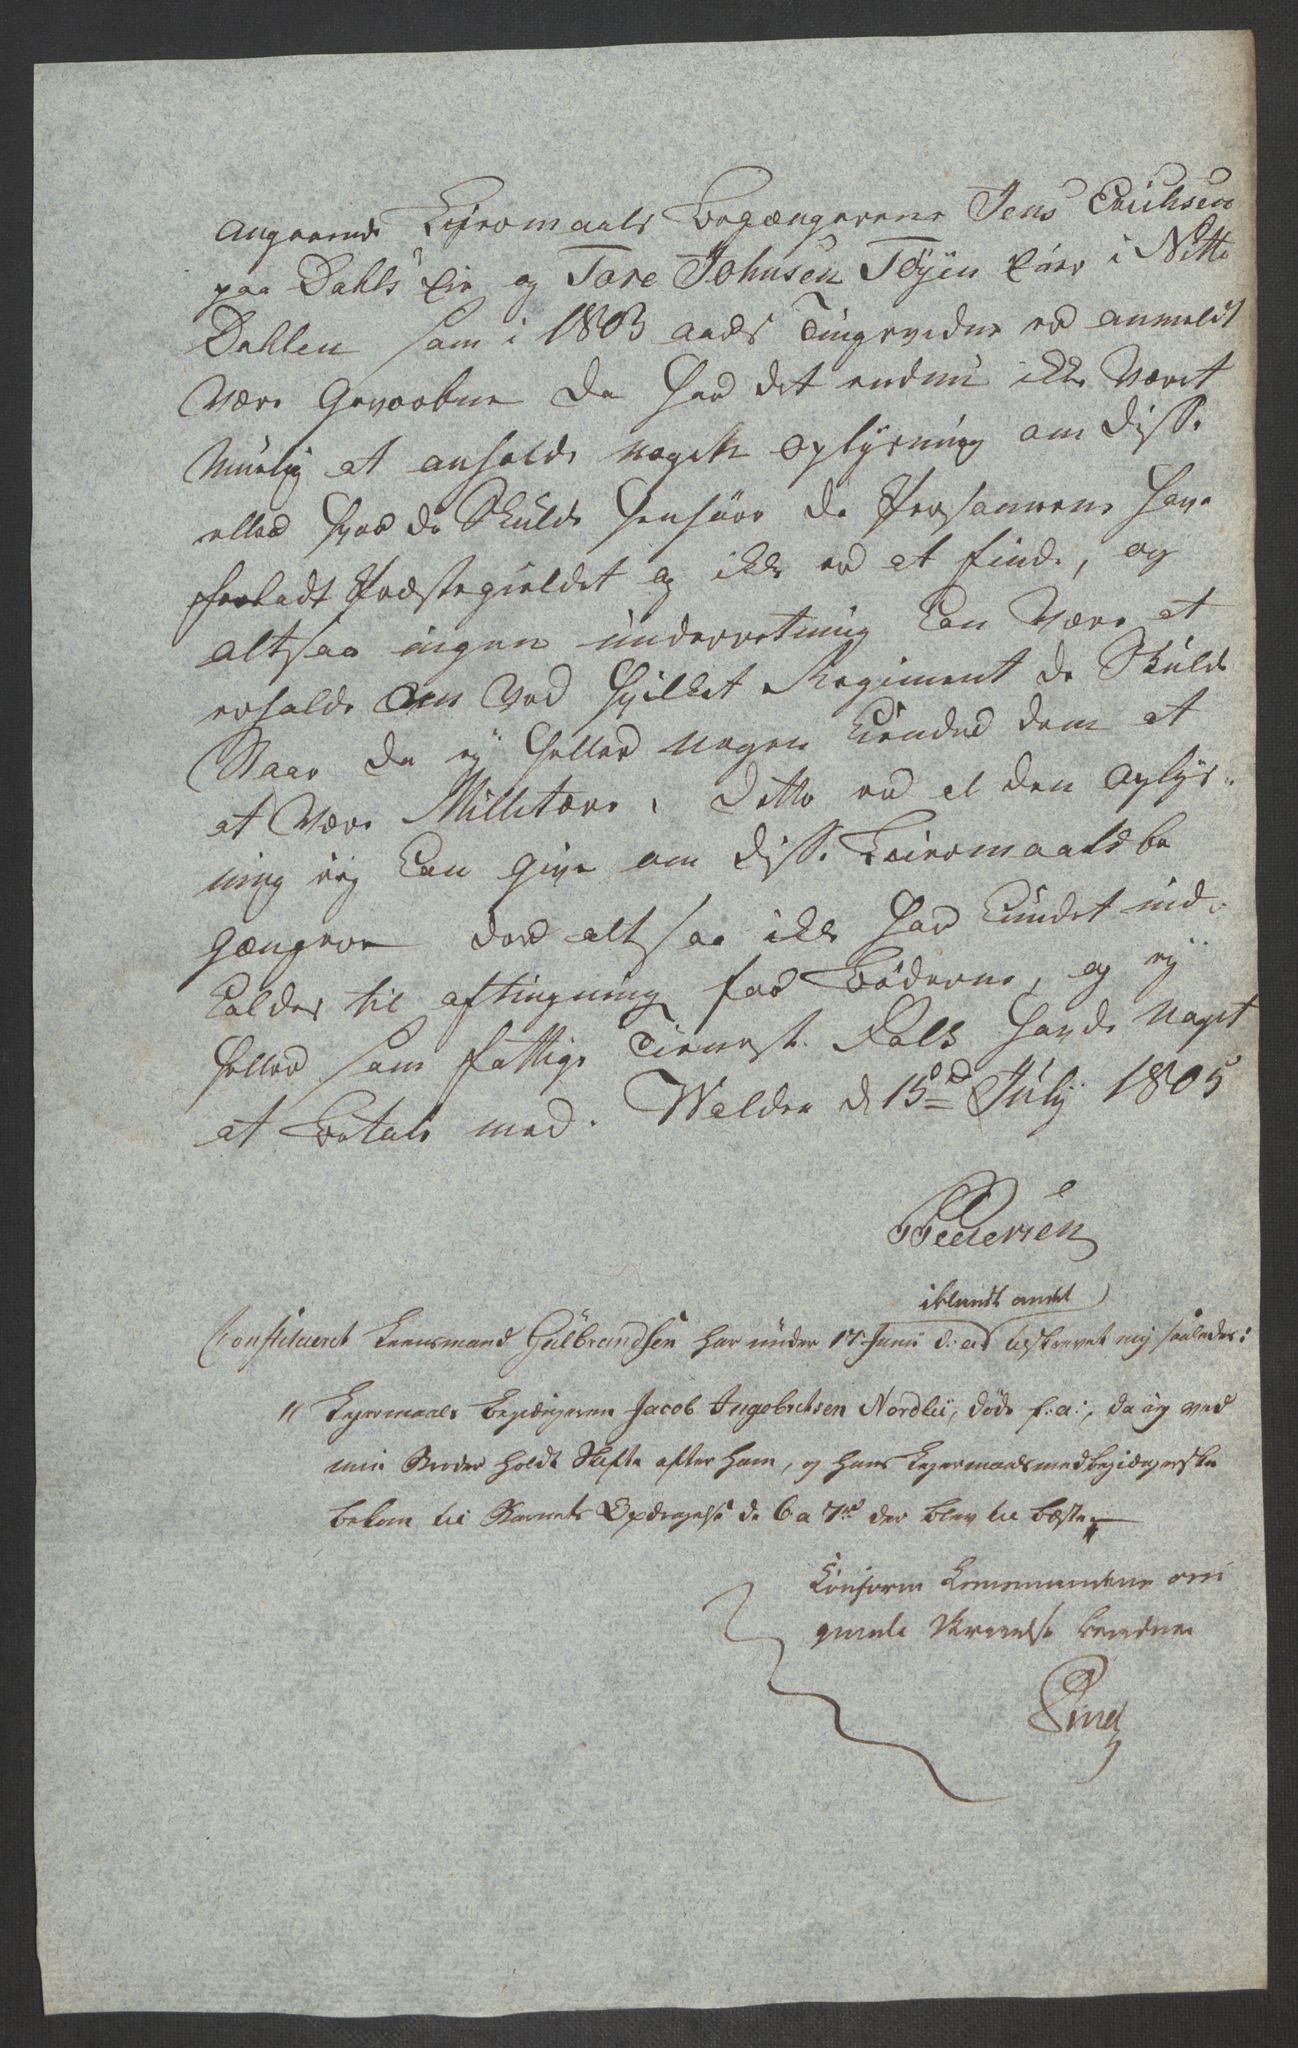 Angaaende Leiermaals Begængerne Jens Erichsen
paa Dahls Eie og Tore Johnsen Tøyen Eier i Nitte
Dahlen som i 1803 aars Tingsvidne er anmeldt
Være Gevorbne da har det endnu ikke Været
Muelig at erholde noget Oplysning om disse
eller hvor de Skulde henhøre da Personnerne have
forladt Præstegieldet og ikke er at finde, og
altsaa ingen underretning Kan Være at
erholde om Ved hvilket Regiment de Skulde
Staae da ey heller nogen Kiender dem at
at Være Millitære, Dette er al den Oplys-
ning ieg Kan give om disse Leiermaals be
gængere der altsaa ikke har kundet ind-
kaldes til aftingning for Bøderne, og ey
heller som fattige Tienest Folk havde noget
at betale med. Walder d 15d July 1805
Pedersen
iblandt andet
Constitueret Leensmand Gulbrandsen har under 17 Junii d: a: tilskrevet mig saaledes:
" Leyermaals Begiængeren Jacob Ingebretsen Nordlie, døde f: a:, da ieg ved
min Broder holdt Skifte efter ham, og hans Leyermaalsmedbegiængerske
bekom til Barnets Opdragelse de 6 a 7 rd der blev til beste "
Conform